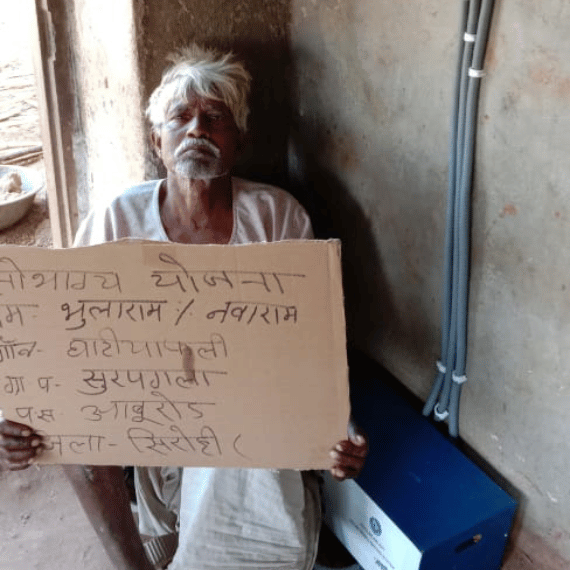 सोभाग्य योजना
नाम- भुलाराम / नवाराम
गाँव- घाटीयापाली
ग्रा प- सुरपगला
प स आबूरोड
जिला- सिरोही (